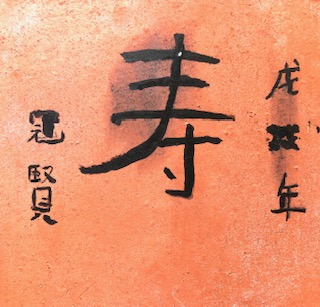 戊年
寿
冠賢